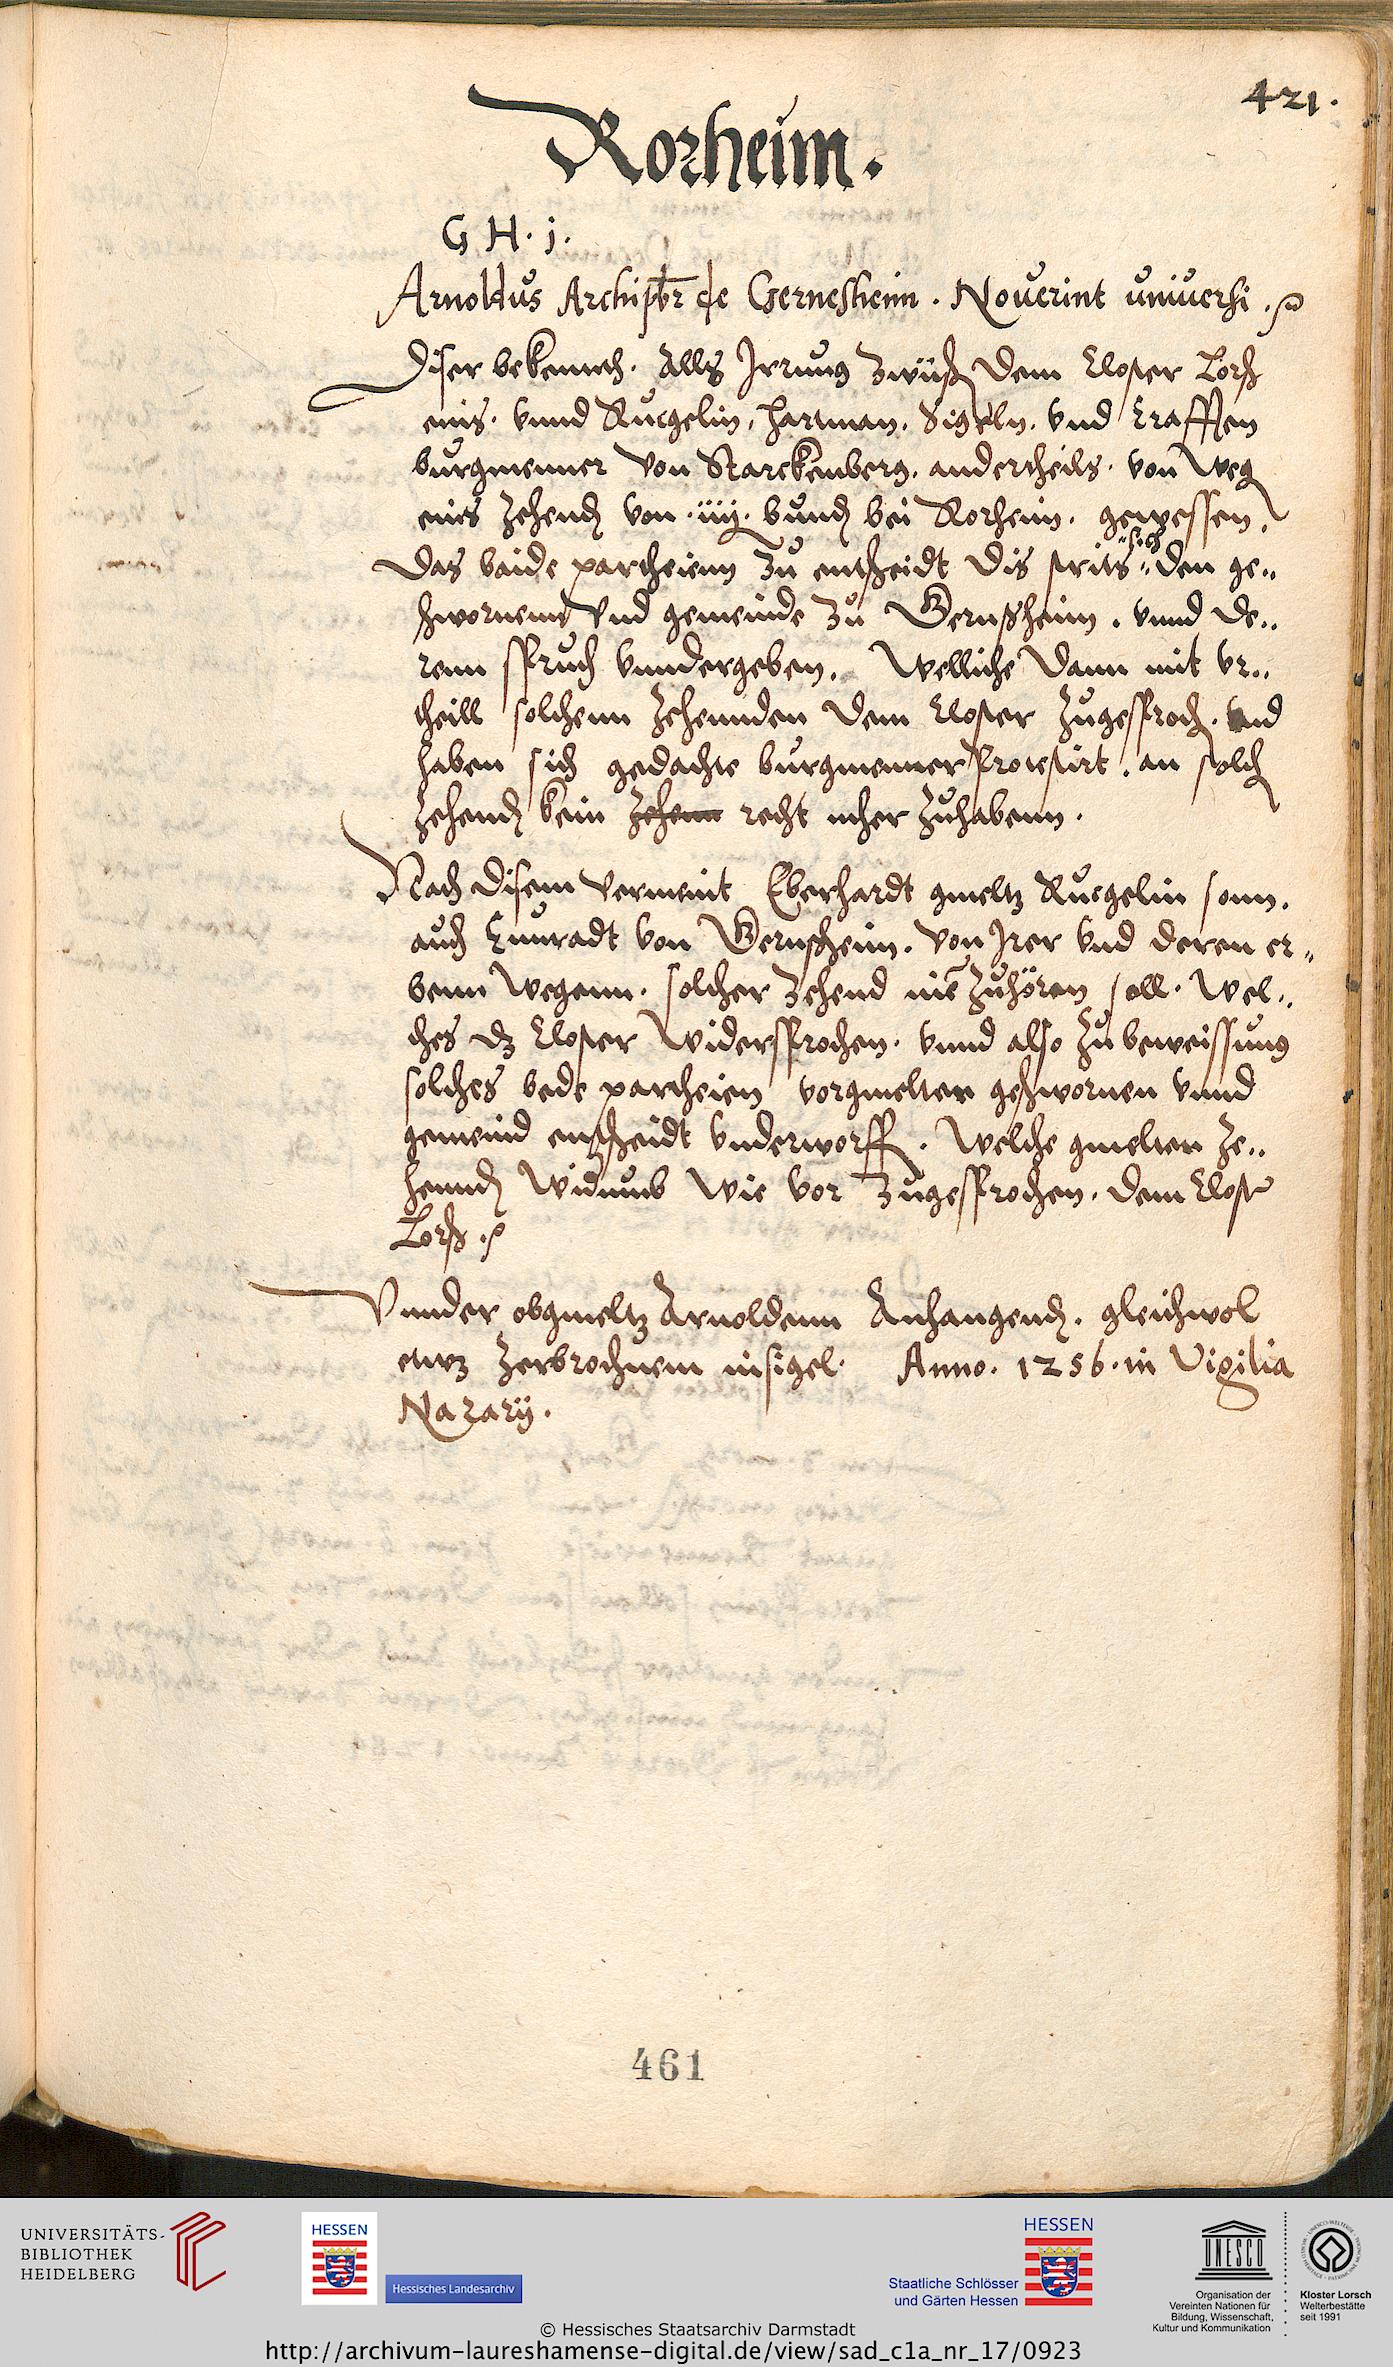 421.
Rorheim.
G H. j.
Arnoldus Archipbr de Gernesheim. Nouerint uniuersi.
Diser bekennth. Alls Irrung zwüsch dem Closter Lorsch
eins. vnnd Rucgelin, Hartman. Sigeln. vnd Crafften
burgmenner von Starckemberg. andertheils. von weg
eins Zehend von iiij. bund bei Rorheim. gewessen.
Das baide partheienn zu entscheidt dis strits sich den ge„
schwornenn vnd gemeinde zu Gernßheim. vnnd de„
renn spruch vnndergeben. Welliche dann mit vr„
theill solchenn Zehennden dem Closter zugesproch. vnd
haben sich gedachte burgmenner protestirt. an solch
Zehend kein Zehenn recht meher zuhabenn.
Nach disem vermeint Eberhardt gmeltz Rucgelin sonn.
auch Cunradt von Gernsheim. von Irer vnd deren er„
benn wegenn. solcher Zehend nie zuhören soll. Wel„
ches dz Closter widersprochen. vnnd also zu beweissung
solches bede partheien vorgmelten geschwornen vnnd
gemeind entscheidt vnderworff. Welche gmelten Ze„
hennd widumb wie vor zugesprochen. dem Closter
Lorsch.
Vunder obgmeltz Arnoldenn Anhangend. gleichwol
etwz zerbrochnem insigel. Anno. 1256. in Vigilia
Nazarij.
461
UNIVERSITÄTS-
BIBLIOTHEK
HEIDELBERG
HESSEN
Hessisches Landesarchiv
HESSEN
Staatliche Schlösser
und Gärten Hessen
UNESCO
Organisation der
Vereinten Nationen für
Bildung, Wissenschaft,
Kultur und Kommunikation
Kloster Lorsch
Welterbestätte
seit 1991
© Hessisches Staatsarchiv Darmstadt
http://archivum-laureshamense-digital.de/view/sad_c1a_nr_17/0923